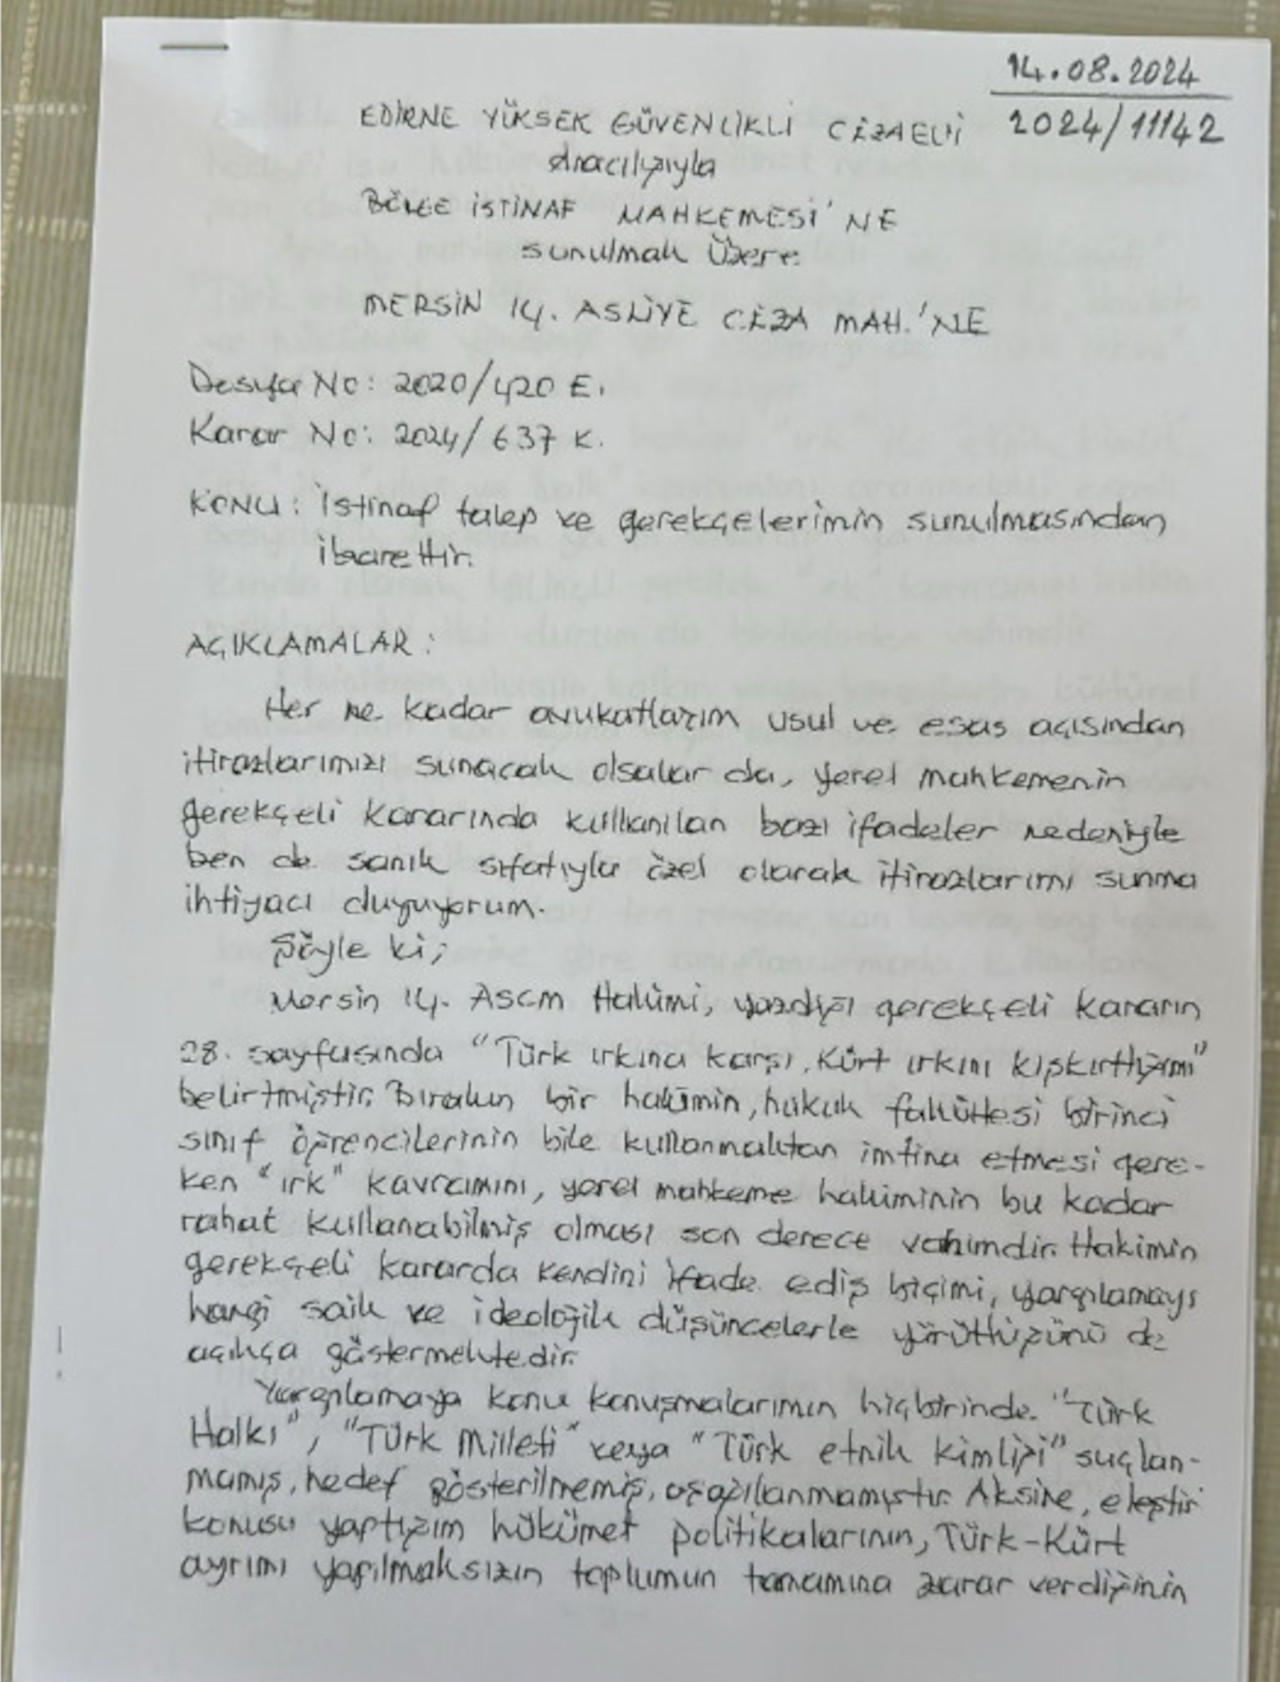 14.08.2024
2024/11142
EDİRNE YÜKSEK GÜVENLİKLİ CEZAEVİ
Aracılığıyla
BÖLGE İSTİNAF MAHKEMESİ'NE
sunulmak Üzere
MERSİN 14. ASLİYE CEZA MAH.'NE
Dosya No: 2020/420 E.
Karar No: 2024/637 K.
KONU: İstinaf talep ve gerekçelerimin sunulmasından
ibarettir.
AÇIKLAMALAR:
Her ne kadar avukatlarım usul ve esas açısından
itirazlarımızı sunacak olsalar da, yerel mahkemenin
gerekçeli kararında kullanılan bazı ifadeler nedeniyle
ben de sanık sıfatıyla özel olarak itirazlarımı sunma
ihtiyacı duyuyorum.
Şöyle ki;
Mersin 14. Ascm Hakimi, yazdığı gerekçeli kararın
28. sayfasında "Türk ırkına karşı, Kürt ırkını kışkırttığımı"
belirtmiştir. Bırakın bir hakimin, hukuk fakültesi birinci
sınıf öğrencilerinin bile kullanmaktan imtina etmesi gere-
ken "ırk" kavramını, yerel mahkeme hakiminin bu kadar
rahat kullanabilmiş olması son derece vahimdir. Hakimin
gerekçeli kararda kendini ifade ediş biçimi, yargılamayı
hangi saik ve ideolojik düşüncelerle yürüttüğünü de
açıkça göstermektedir.
Yargılamaya konu konuşmalarımın hiçbirinde "Türk
Halkı", "Türk Milleti" veya "Türk etnik kimliği" suçlan-
mamış, hedef gösterilmemiş, aşağılanmamıştır. Aksine, eleştiri
konusu yaptığım hükümet politikalarının, Türk-Kürt
ayrımı yapılmaksızın toplumun tamamına zarar verdiğinin